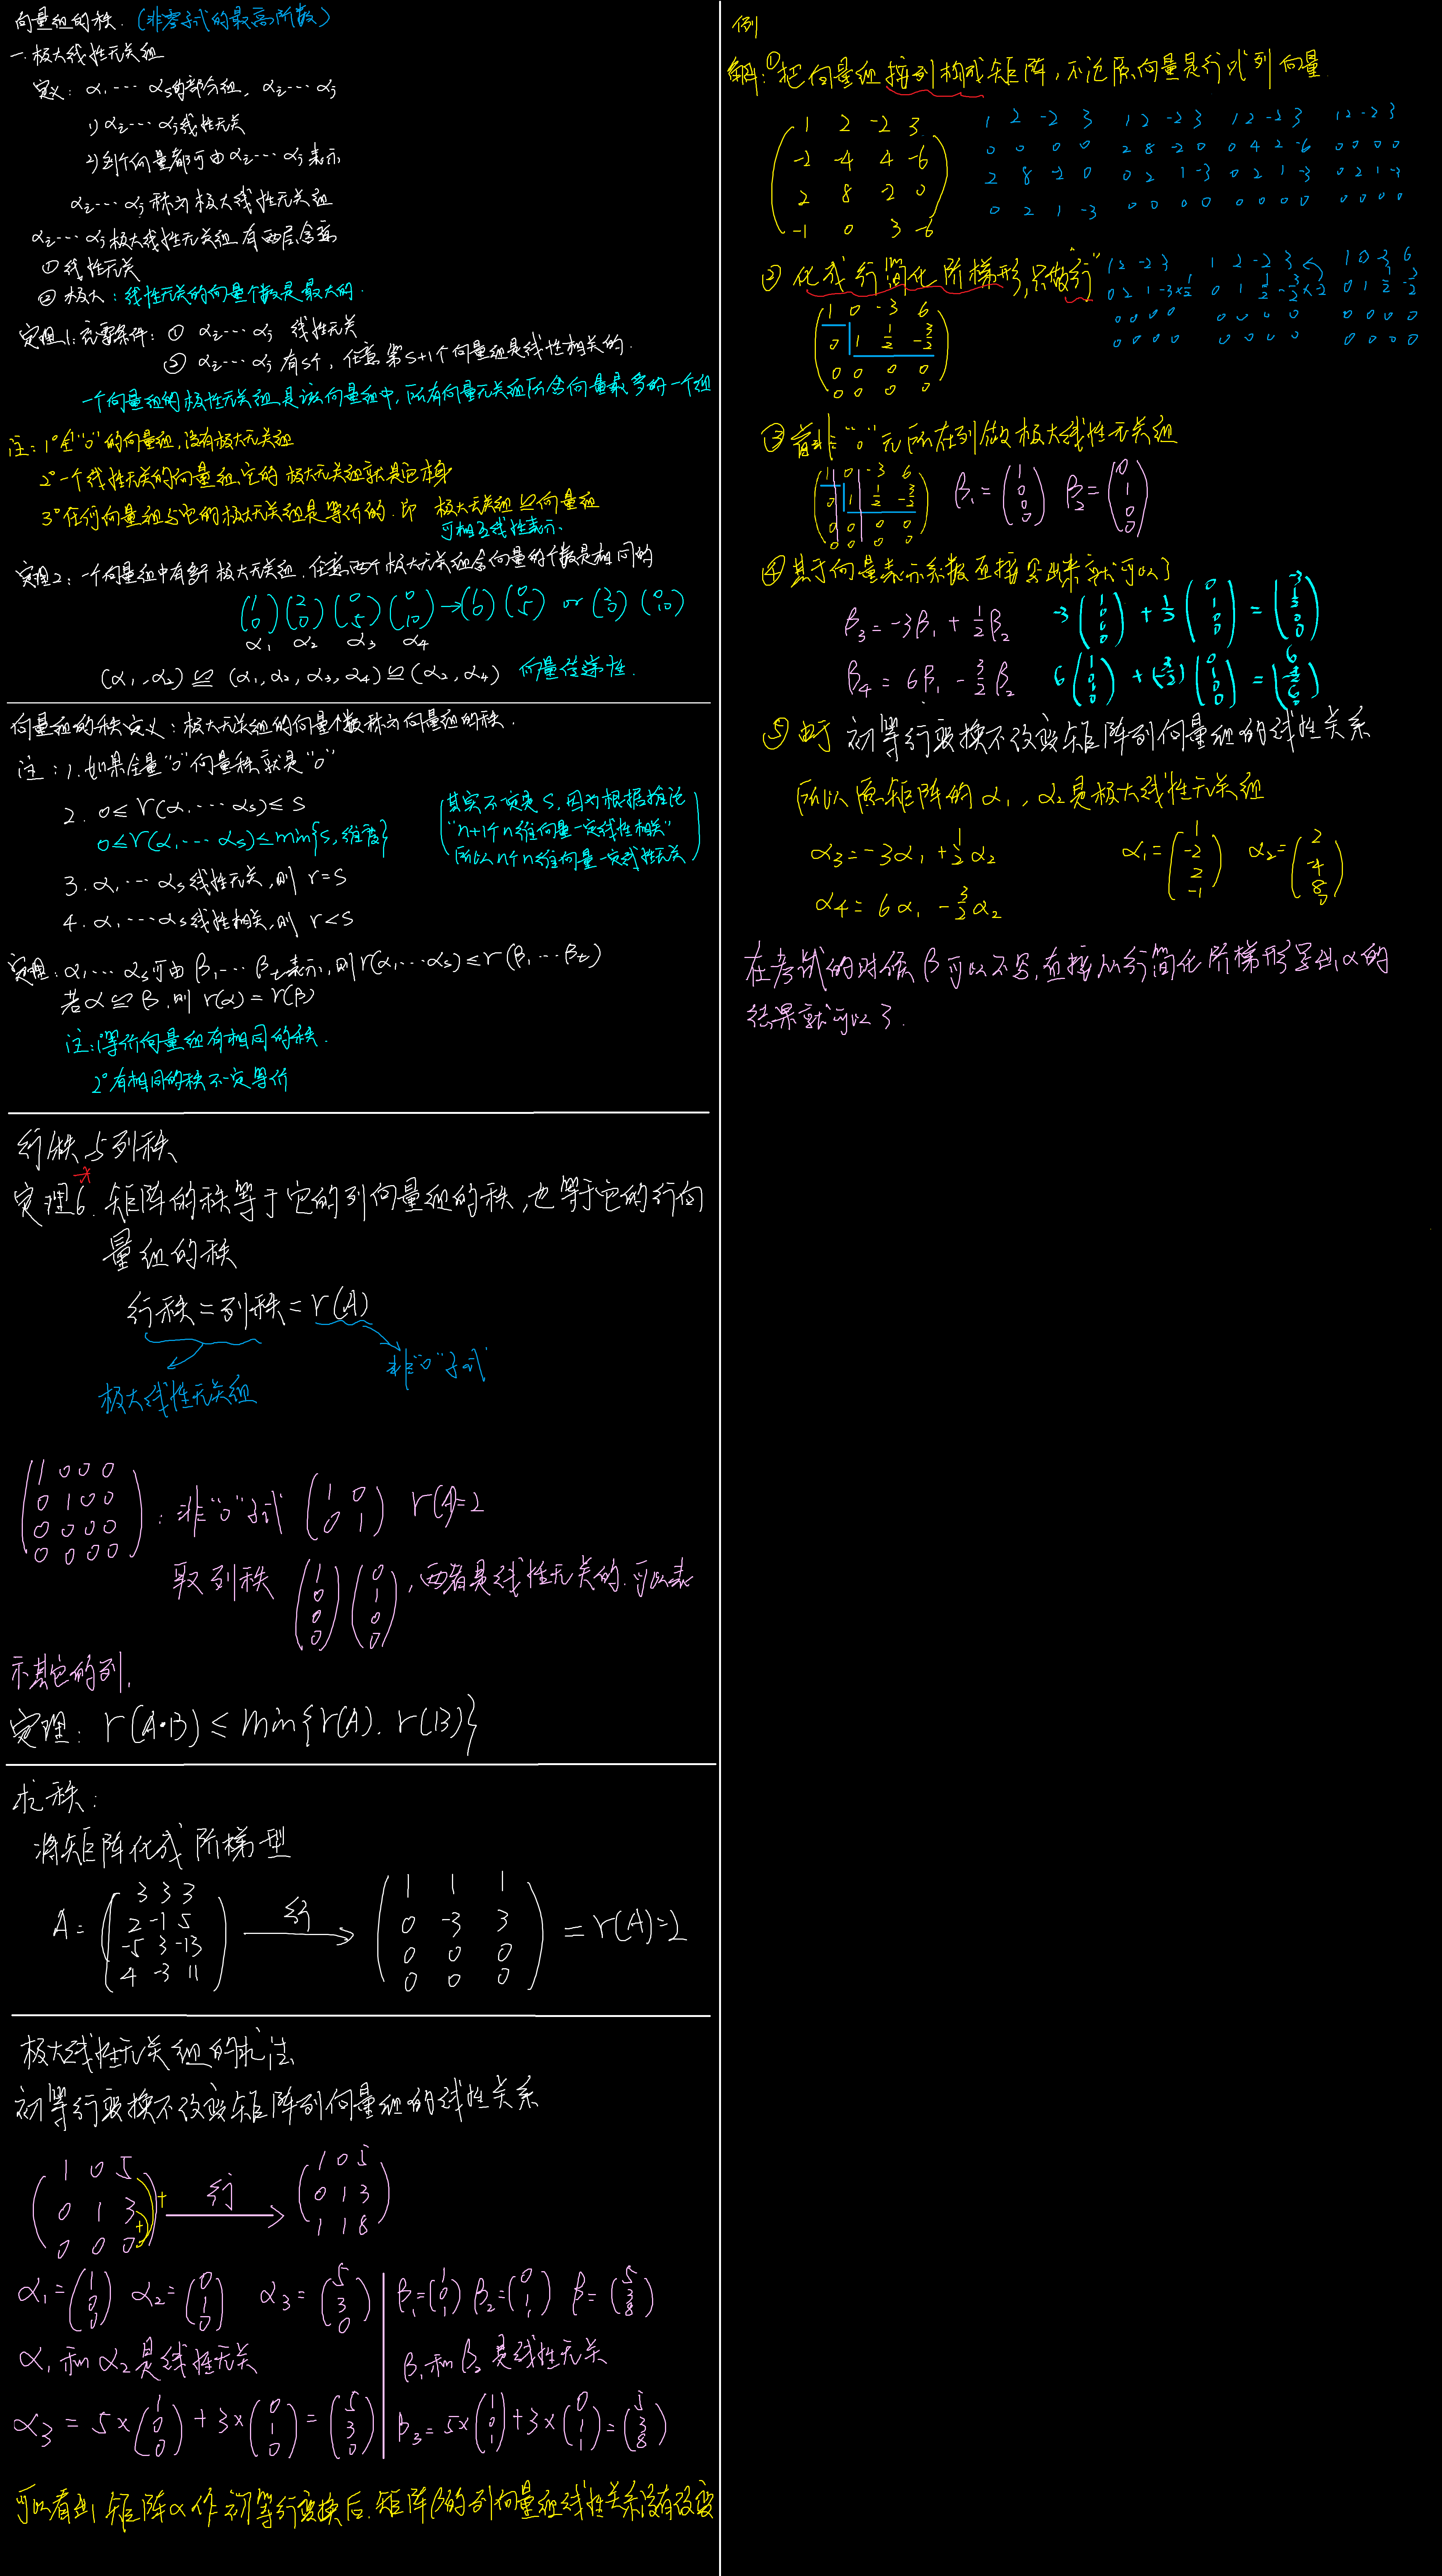 向量组的秩.(非零子式的最高阶数)
一.极大线性无关组
定义: α₁…αₛ的部分组, αᵢ…αⱼ
1) αᵢ…αⱼ线性无关
2) 每个向量都可由αᵢ…αⱼ表示
αᵢ…αⱼ称为极大线性无关组
αᵢ…αⱼ极大线性无关组有两层含义
① 线性无关
② 极大:线性无关的向量个数是最大的.
定理1:充要条件: ① αᵢ…αⱼ 线性无关
② αᵢ…αⱼ有s个, 任意第s+1个向量组是线性相关的.
一个向量组的极性无关组是该向量组中,所有向量无关组所含向量最多的一个组
注: 1°全"0"的向量组,没有极大无关组
2°一个线性无关的向量组,它的极大无关组就是它本身
3°任何向量组与它的极大无关组是等价的.即 极大无关组≌向量组
可相互线性表示.
定理2:一个向量组中有多个极大无关组.任意两个极大无关组含向量的个数是相同的
(1 0) (2 0) (0 5) (0 10) → (1 0) (0 5) or (2 0) (0 10)
α₁ α₂ α₃ α₄
(α₁,α₂) ≌ (α₁,α₂,α₃,α₄) ≌ (α₂,α₄) 向量传递性.
向量组的秩定义:极大无关组的向量个数称为向量组的秩.
注:1.如果全量"0"向量秩就是"0"
2. 0≤r(α₁…αₛ)≤s
0≤r(α₁…αₛ)≤min{s,维度}
(其实不一定是s,因为根据推论
"n+1个n维向量一定线性相关"
所以n个n维向量一定线性无关)
3. α₁…αₛ线性无关,则 r=s
4. α₁…αₛ线性相关,则 r<s
定理:α₁…αₛ可由β₁…βₜ表示,则r(α₁…αₛ)≤r(β₁…βₜ)
若α≌β,则 r(α)=r(β)
注:1°等价向量组有相同的秩.
2°有相同的秩不一定等价
行秩与列秩
定理6.矩阵的秩等于它的列向量组的秩,也等于它的行向
量组的秩
行秩=列秩=r(A)
非"0"子式
极大线性无关组
1 0 0 0
0 1 0 0
0 0 0 0
0 0 0 0
:非"0"子式 (1 0 0 1) r(A)=2
取列秩 (1 0 0 0) (0 1 0 0),两者是线性无关的.可以表
示其它的列.
定理: r(A·B)≤min{r(A).r(B)}
求秩:
将矩阵化成阶梯型
A=
3 3 3
2 -1 5
-5 3 -13
4 -3 11
行
1 1 1
0 -3 3
0 0 0
0 0 0
=r(A)=2
极大线性无关组的求法
初等行变换不改变矩阵列向量组的线性关系
1 0 5
0 1 3
0 0 0
+
+
行
1 0 5
0 1 3
1 1 8
α₁=(1 0 0) α₂=(0 1 0) α₃=(5 3 0)
α₁和α₂是线性无关
α₃=5×(1 0 0)+3×(0 1 0)=(5 3 0)
β₁=(1 0 1) β₂=(0 1 1) β=(5 3 8)
β₁和β₂是线性无关
β₃=5×(1 0 1)+3×(0 1 1)=(5 3 8)
可以看出矩阵α作初等行变换后.矩阵β的列向量组线性关系没有改变
例
解:①把向量组按列构成矩阵,不论原向量是行或列向量.
1 2 -2 3
-2 -4 4 -6
2 8 -2 0
-1 0 3 -6
1 2 -2 3
0 0 0 0
2 8 -2 0
0 2 1 -3
1 2 -2 3
2 8 -2 0
0 2 1 -3
0 0 0 0
1 2 -2 3
0 4 2 -6
0 2 1 -3
0 0 0 0
1 2 -2 3
0 0 0 0
0 2 1 -3
0 0 0 0
② 化成行简化阶梯形,只做"行"
1 2 -2 3
0 2 1 -3 ×1/2
0 0 0 0
0 0 0 0
1 2 -2 3
0 1 1/2 -3/2 ×-2
0 0 0 0
0 0 0 0
1 0 -3 6
0 1 1/2 -3/2
0 0 0 0
0 0 0 0
1 0 -3 6
0 1 1/2 -3/2
0 0 0 0
0 0 0 0
③ 首非"0"元所在列做极大线性无关组
1 0 -3 6
0 1 1/2 -3/2
0 0 0 0
0 0 0 0
β₁=(1 0 0 0) β₂=(0 1 0 0)
④其于向量表示系数直接写出来就可以了
β₃=-3β₁+1/2β₂ -3(1 0 0 0)+1/2(0 1 0 0)=(-3 1/2 0 0)
β₄=6β₁-3/2β₂ 6(1 0 0 0)+(-3/2)(0 1 0 0)=(6 -3/2 0 0)
⑤ 由于 初等行变换不改变矩阵列向量组的线性关系
所以原矩阵的α₁,α₂是极大线性无关组
α₃=-3α₁+1/2α₂ α₁=(1 -2 2 -1) α₂=(2 -4 8 0)
α₄=6α₁-3/2α₂
在考试的时候β可以不写,直接从行简化阶梯形写出α的
结果就可以了.